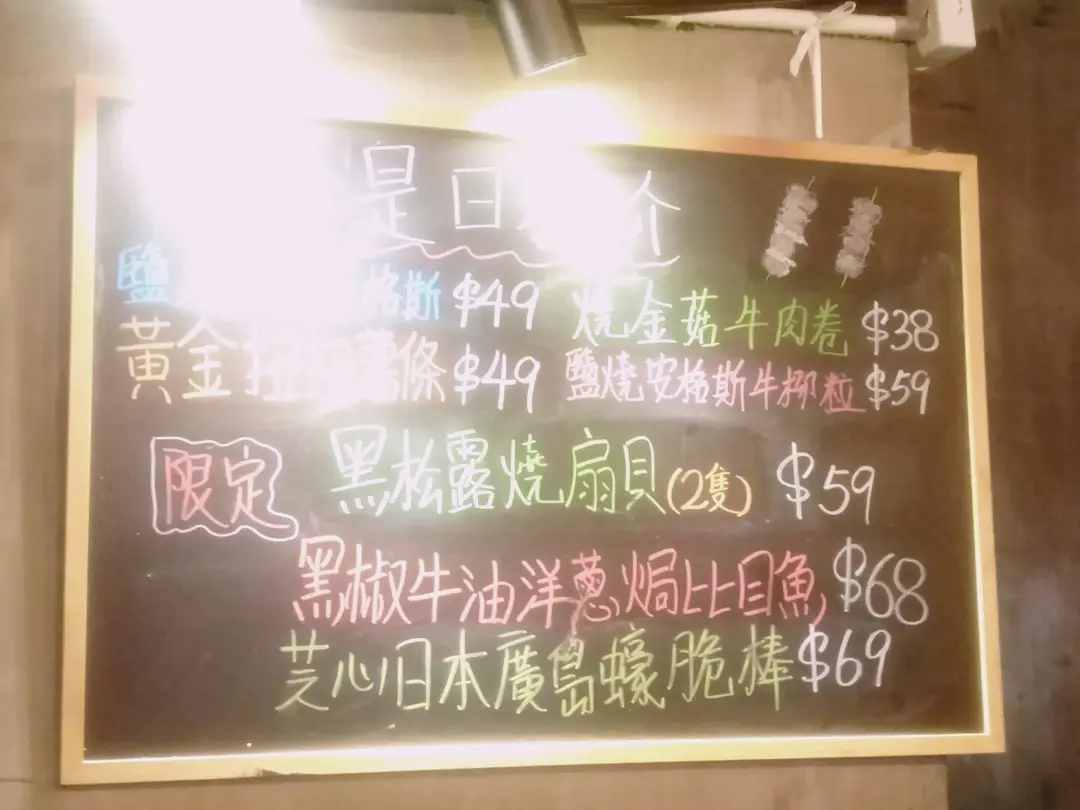 是日 介
鹽 格斯 $49
黃金扭 薯條 $49
燒金菇牛肉卷 $38
鹽燒安格斯牛柳粒 $59
限定
黑松露燒扇貝(2隻) $59
黑椒牛油洋蔥焗比目魚 $68
芝心日本廣島蠔脆棒 $69